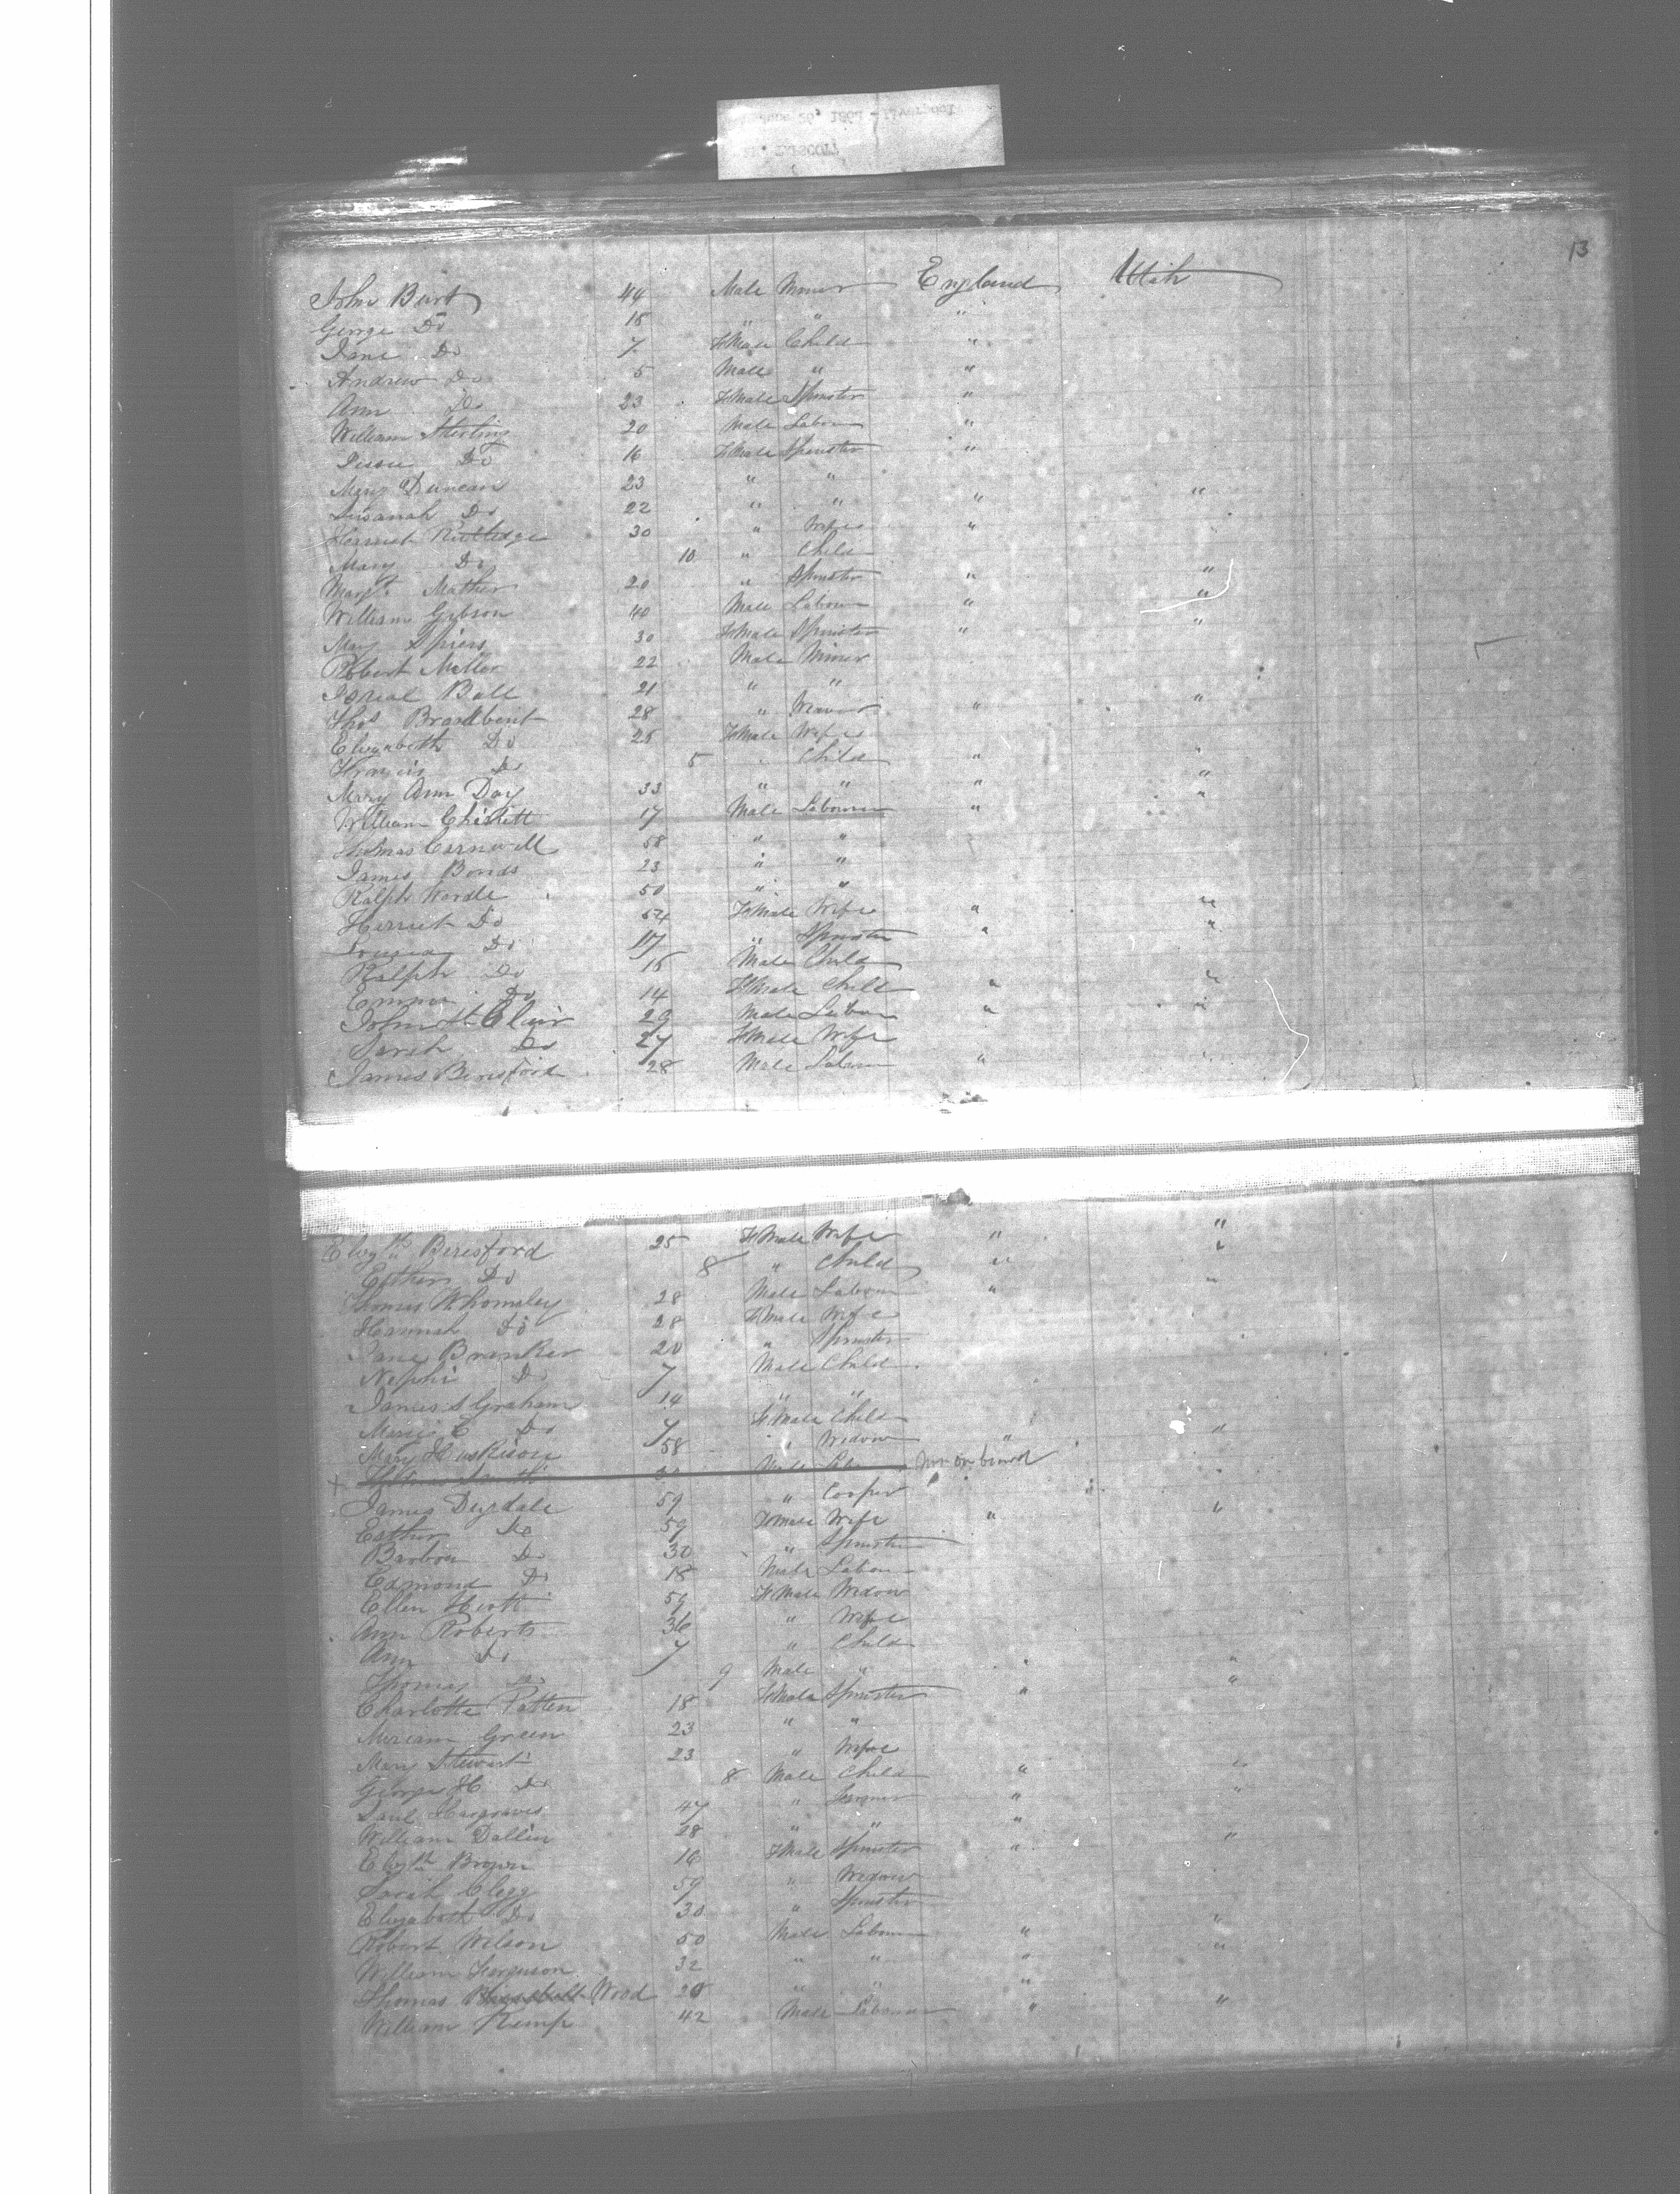 13
John Burt 44 Male Miner England Utah
George Do 15 " " "
Jane Do 7 FeMale Child "
Andrew Do 5 Male " "
Ann Do 23 FeMale Spinster "
William Sterling 20 Male Labour "
Jessie Do 16 FeMale Spinster "
Mary Duncan 23 " "
Susanah Do 22 " " " "
Harriet Rutledge 30 " Wife "
Mary Do 10 " Child
Margt. Mather 20 " Spinster " "
William Gibson 40 Male Labour " "
Mary Spiers 30 FeMale Spinster " "
Robert Miller 22 Male Miner
Isreal Ball 21 " "
Thos Broadbent 28 " Weaver " "
Elizabeth Do 25 FeMale Wife
Francis Do 5 " Child " "
Mary Ann Day 33 " " " "
William Chislett 17 Male Labourer " "
Thomas Carnwell 58 " "
James Bonds 23 " "
Ralph Wardle 50 " "
Herriet Do 54 FeMale Wife " "
Do 17 " Spinster " "
Ralph Do 15 Male Child
Emma Do 14 FeMale Child " "
John St Clair 29 Male Labour " "
Sarah Do 27 FeMale Wife
James Beresford 28 Male Labour " "
Elizth Beresford 25 FeMale Wife " "
Esther Do 8 " Child " "
Thomas Whomsley 28 Male Labour " "
Hannah Do 28 FeMale Wife
Jane Branker 20 " Spinster
Nephi Do 7 Male Child
James S Graham 14 " "
Marie C Do 7 FeMale Child
Mary Huskison 58 " Widow " "
+ Male Not on board
James Duxdale 59 " Cooper
Esther Do 59 FeMale Wife " "
Barbra Do 30 " Spinster
Edmond Do 18 Male Labour
Ellen Hiott 59 FeMale Widow
Ann Roberts 36 " Wife
Ann Do 7 " Child
Thomas Do 9 Male " " "
Charlotte Patten 18 FeMale Spinster " "
Miriam Green 23 " "
Mary Stewart 23 " Wife
George H Do 8 Male Child " "
Saul Hargraves 47 " Farmer " "
William Dallin 28 " " "
Elizth Brown 16 FeMale Spinster " "
Sarah Clegg 59 " Widow
Elizabeth Do 30 " Spinster
Robert Wilson 50 Male Labour " "
William Ferguson 32 " " " "
Thomas Wood 20 " " "
William Kemp 42 Male Labourer " "